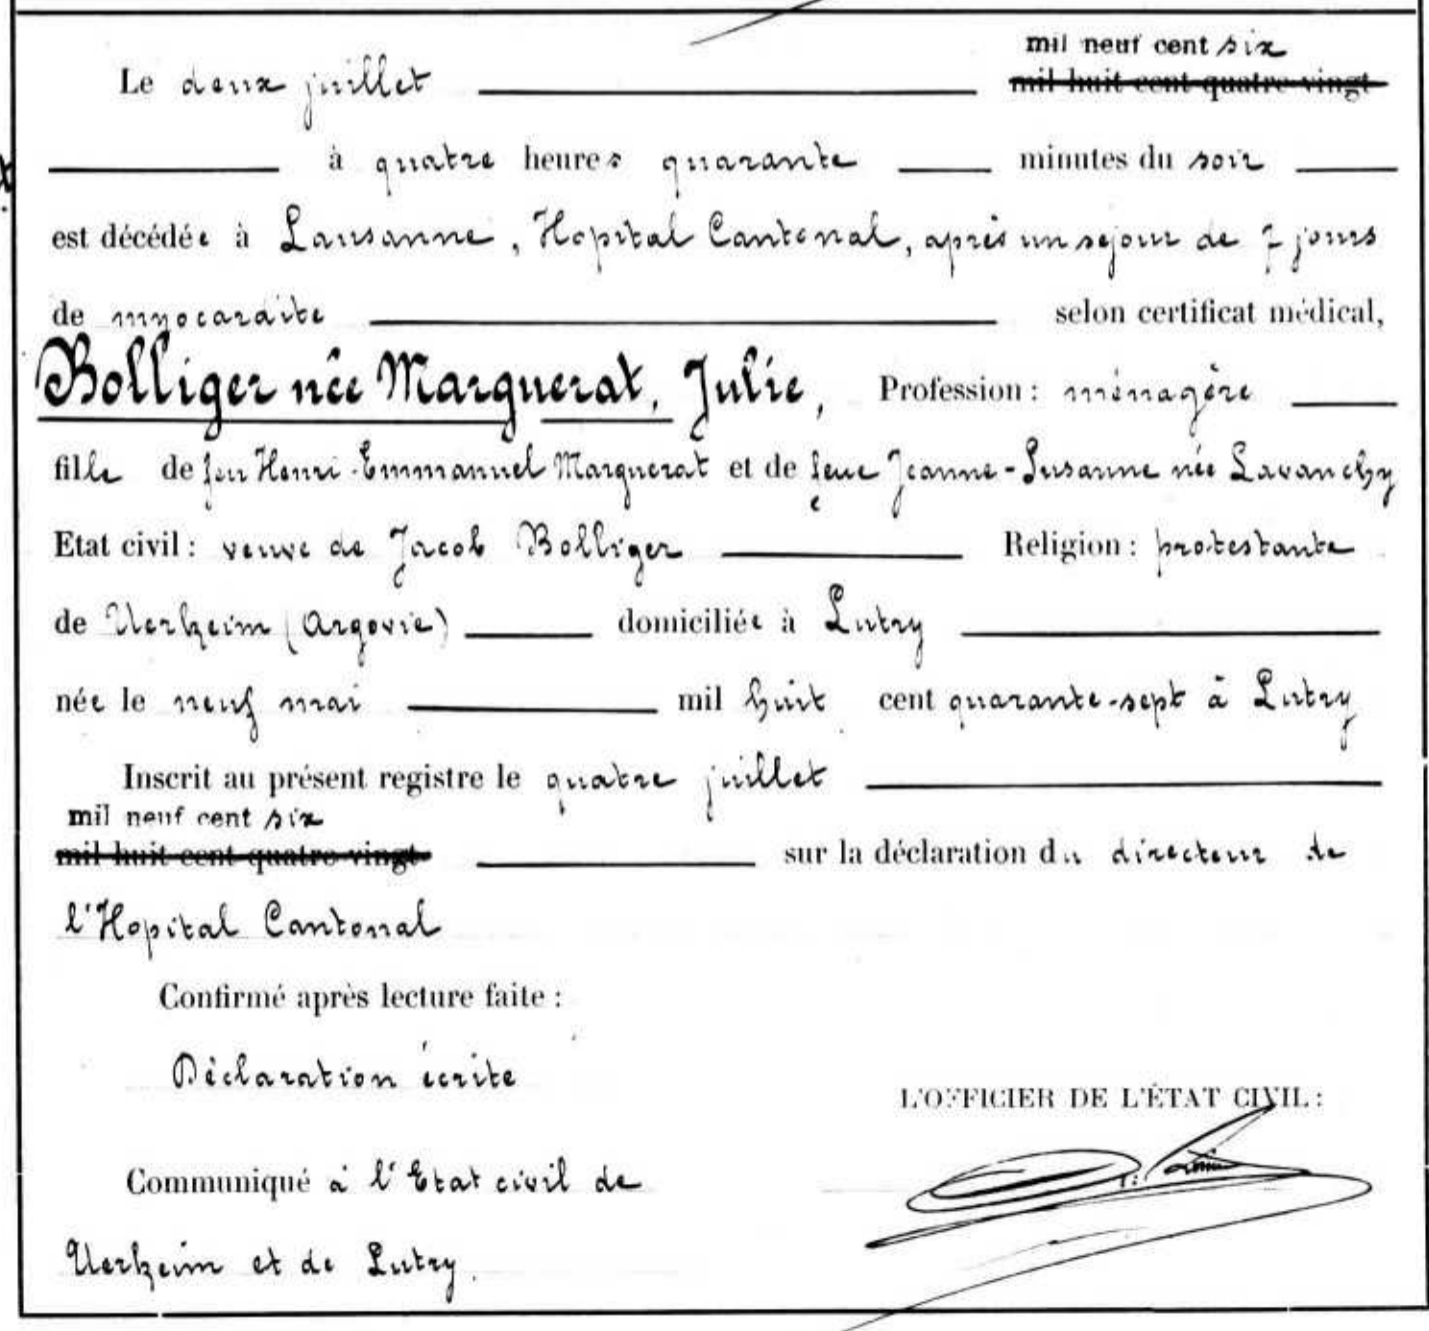 mil neuf cent six
Le deux juillet mil huit cent quatre-vingt
à quatre heures quarante minutes du soir
est décédée à Lausanne, Hopital Cantonal, après un séjour de 7 jours
de myocardite selon certificat médical,
Bolliger née Marguerat, Julie, Profession : ménagère
fille de feu Henri-Emmanuel Marguerat et de feue Jeanne-Susanne née Lavanchy
Etat civil : veuve de Jacob Bolliger Religion : protestante
de Uerkheim (Argovie) domiciliée à Lutry
née le neuf mai mil huit cent quarante-sept à Lutry
Inscrit au présent registre le quatre juillet
mil neuf cent six
mil huit cent quatre-vingt sur la déclaration du directeur de
l'Hopital Cantonal
Confirmé après lecture faite :
Déclaration écrite
L'OFFICIER DE L'ÉTAT CIVIL :
Communiqué à l'Etat civil de
Uerkheim et de Lutry.